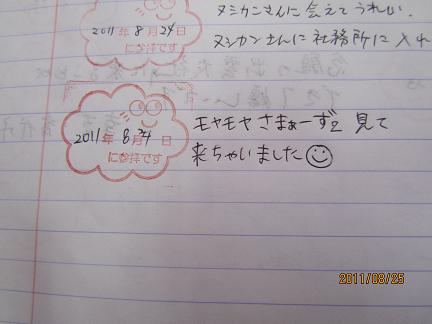 ヌシカンさんに会えてうれしい.
2011年 8月 24日
に参拝です
ヌシカンさんに社務所に入れ
2011年 8月24日
に参拝です
モヤモヤさまぁーず2 見て
来ちゃいました
2011/08/25